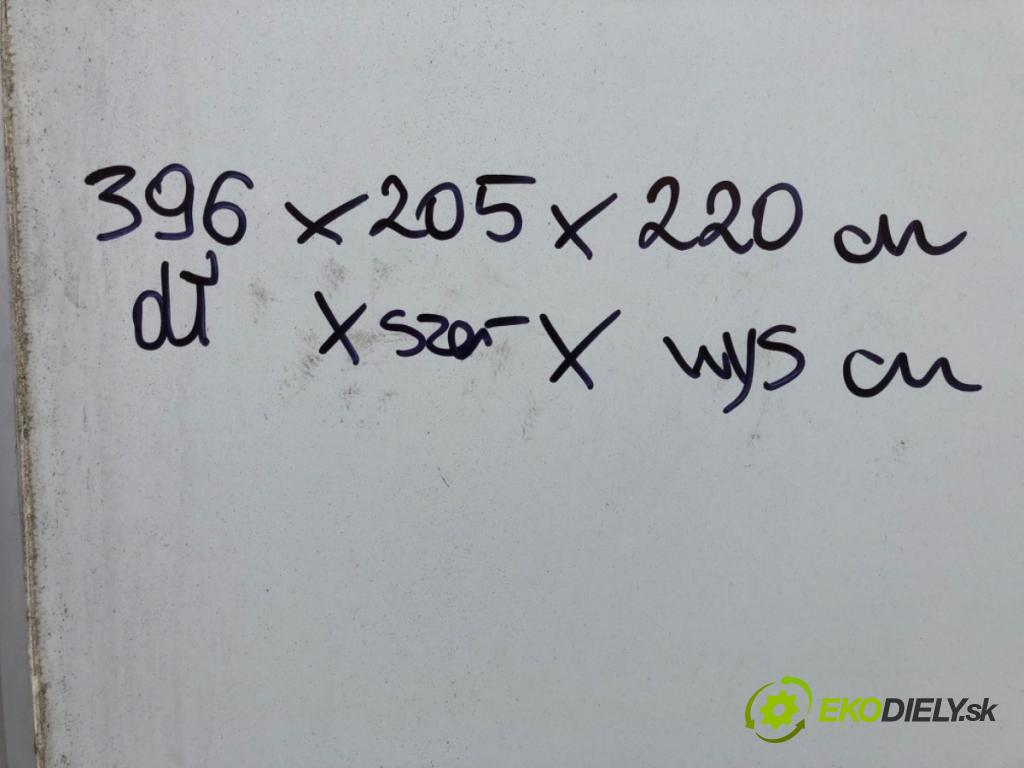 396 x 205 x 220 cm
dł x szer x wys cm
EKODIELY.sk